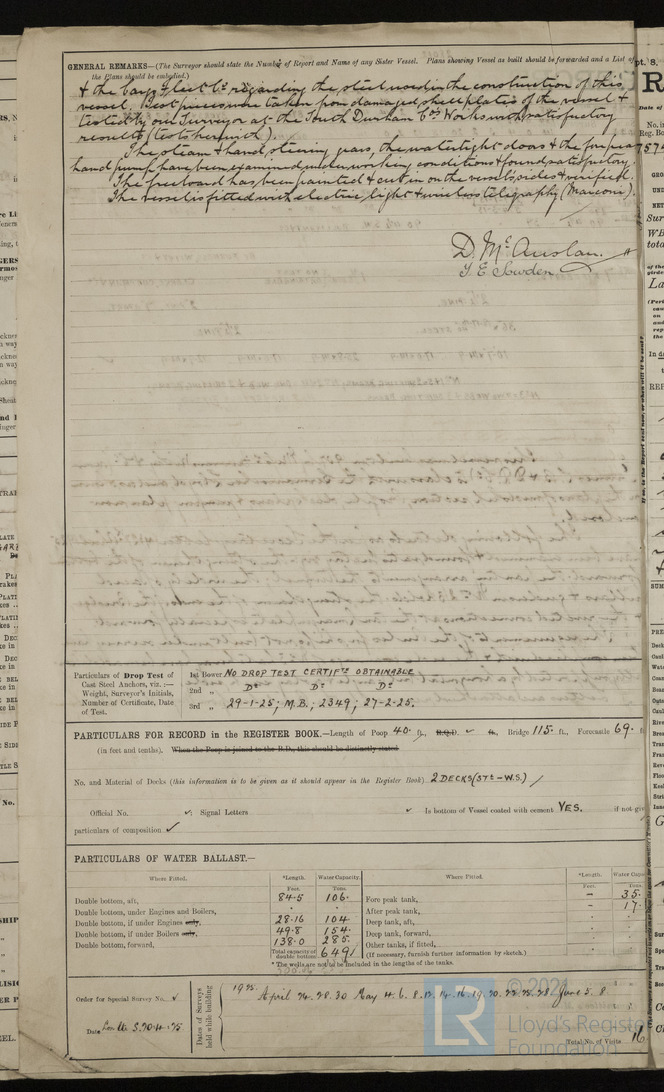 GENERAL REMARKS—(The Surveyor should state the Number of Report and Name of any Sister Vessel. Plans showing Vessel as built should be forwarded and a List of
the Plans should be embodied.)
& the Cargo Fleet Co. regarding the steel used in the construction of this
vessel. Test pieces were taken from damaged shell plates of the vessel &
tested by our Surveyor at the South Durham Co's Works with satisfactory
results (tests herewith).
The steam & hand steering gears, the watertight doors & the fore peak
hand pump have been examined under working conditions & found satisfactory.
The freeboard has been painted & cut in on the vessel's sides & verified.
The vessel is fitted with electric light & wireless telegraphy (Marconi).
D. McAuslan.
T. E. Sowden
Particulars of Drop Test of
Cast Steel Anchors, viz.:—
Weight, Surveyor's Initials,
Number of Certificate, Date
of Test.
1st Bower NO DROP TEST CERTIFTE OBTAINABLE
2nd „ Do Do Do
3rd „ 29-1-25; M.B.; 2349; 27-2-25.
PARTICULARS FOR RECORD in the REGISTER BOOK.—Length of Poop 40. ft., R.Q.D. ✓ ft., Bridge 115. ft., Forecastle 69. ft
(in feet and tenths). When the Poop is joined to the B.D., this should be distinctly stated
No. and Material of Decks (this information is to be given as it should appear in the Register Book) 2 DECKS (STL - W.S.)
Official No. ✓ Signal Letters ✓ Is bottom of Vessel coated with cement YES. if not give
particulars of composition ✓
PARTICULARS OF WATER BALLAST.—
Where Fitted. *Length. Water Capacity. Where Fitted. *Length. Water Capac
Feet. Tons. Feet. Tons.
Double bottom, aft, 84.5 106. Fore peak tank, - 35.
Double bottom, under Engines and Boilers, . . After peak tank, - 17.
Double bottom, if under Engines only, 28.16 104 Deep tank, aft,
Double bottom, if under Boilers only, 49.8 154. Deep tank, forward,
Double bottom, forward, 138.0 285. Other tanks, if fitted,
Total capacity of double bottom 649 (If necessary, furnish further information by sketch.)
* The wells are not to be included in the lengths of the tanks.
Order for Special Survey No. ✓
Date
Dates of Surveys held while building
1925. April 24. 28. 30 May 4. 6. 8. 12. 14. 16. 19. 20. 22. 25. 28 June 5. 8
Total No. of Visits 16
© 2021
Lloyd's Register
Foundation
LR